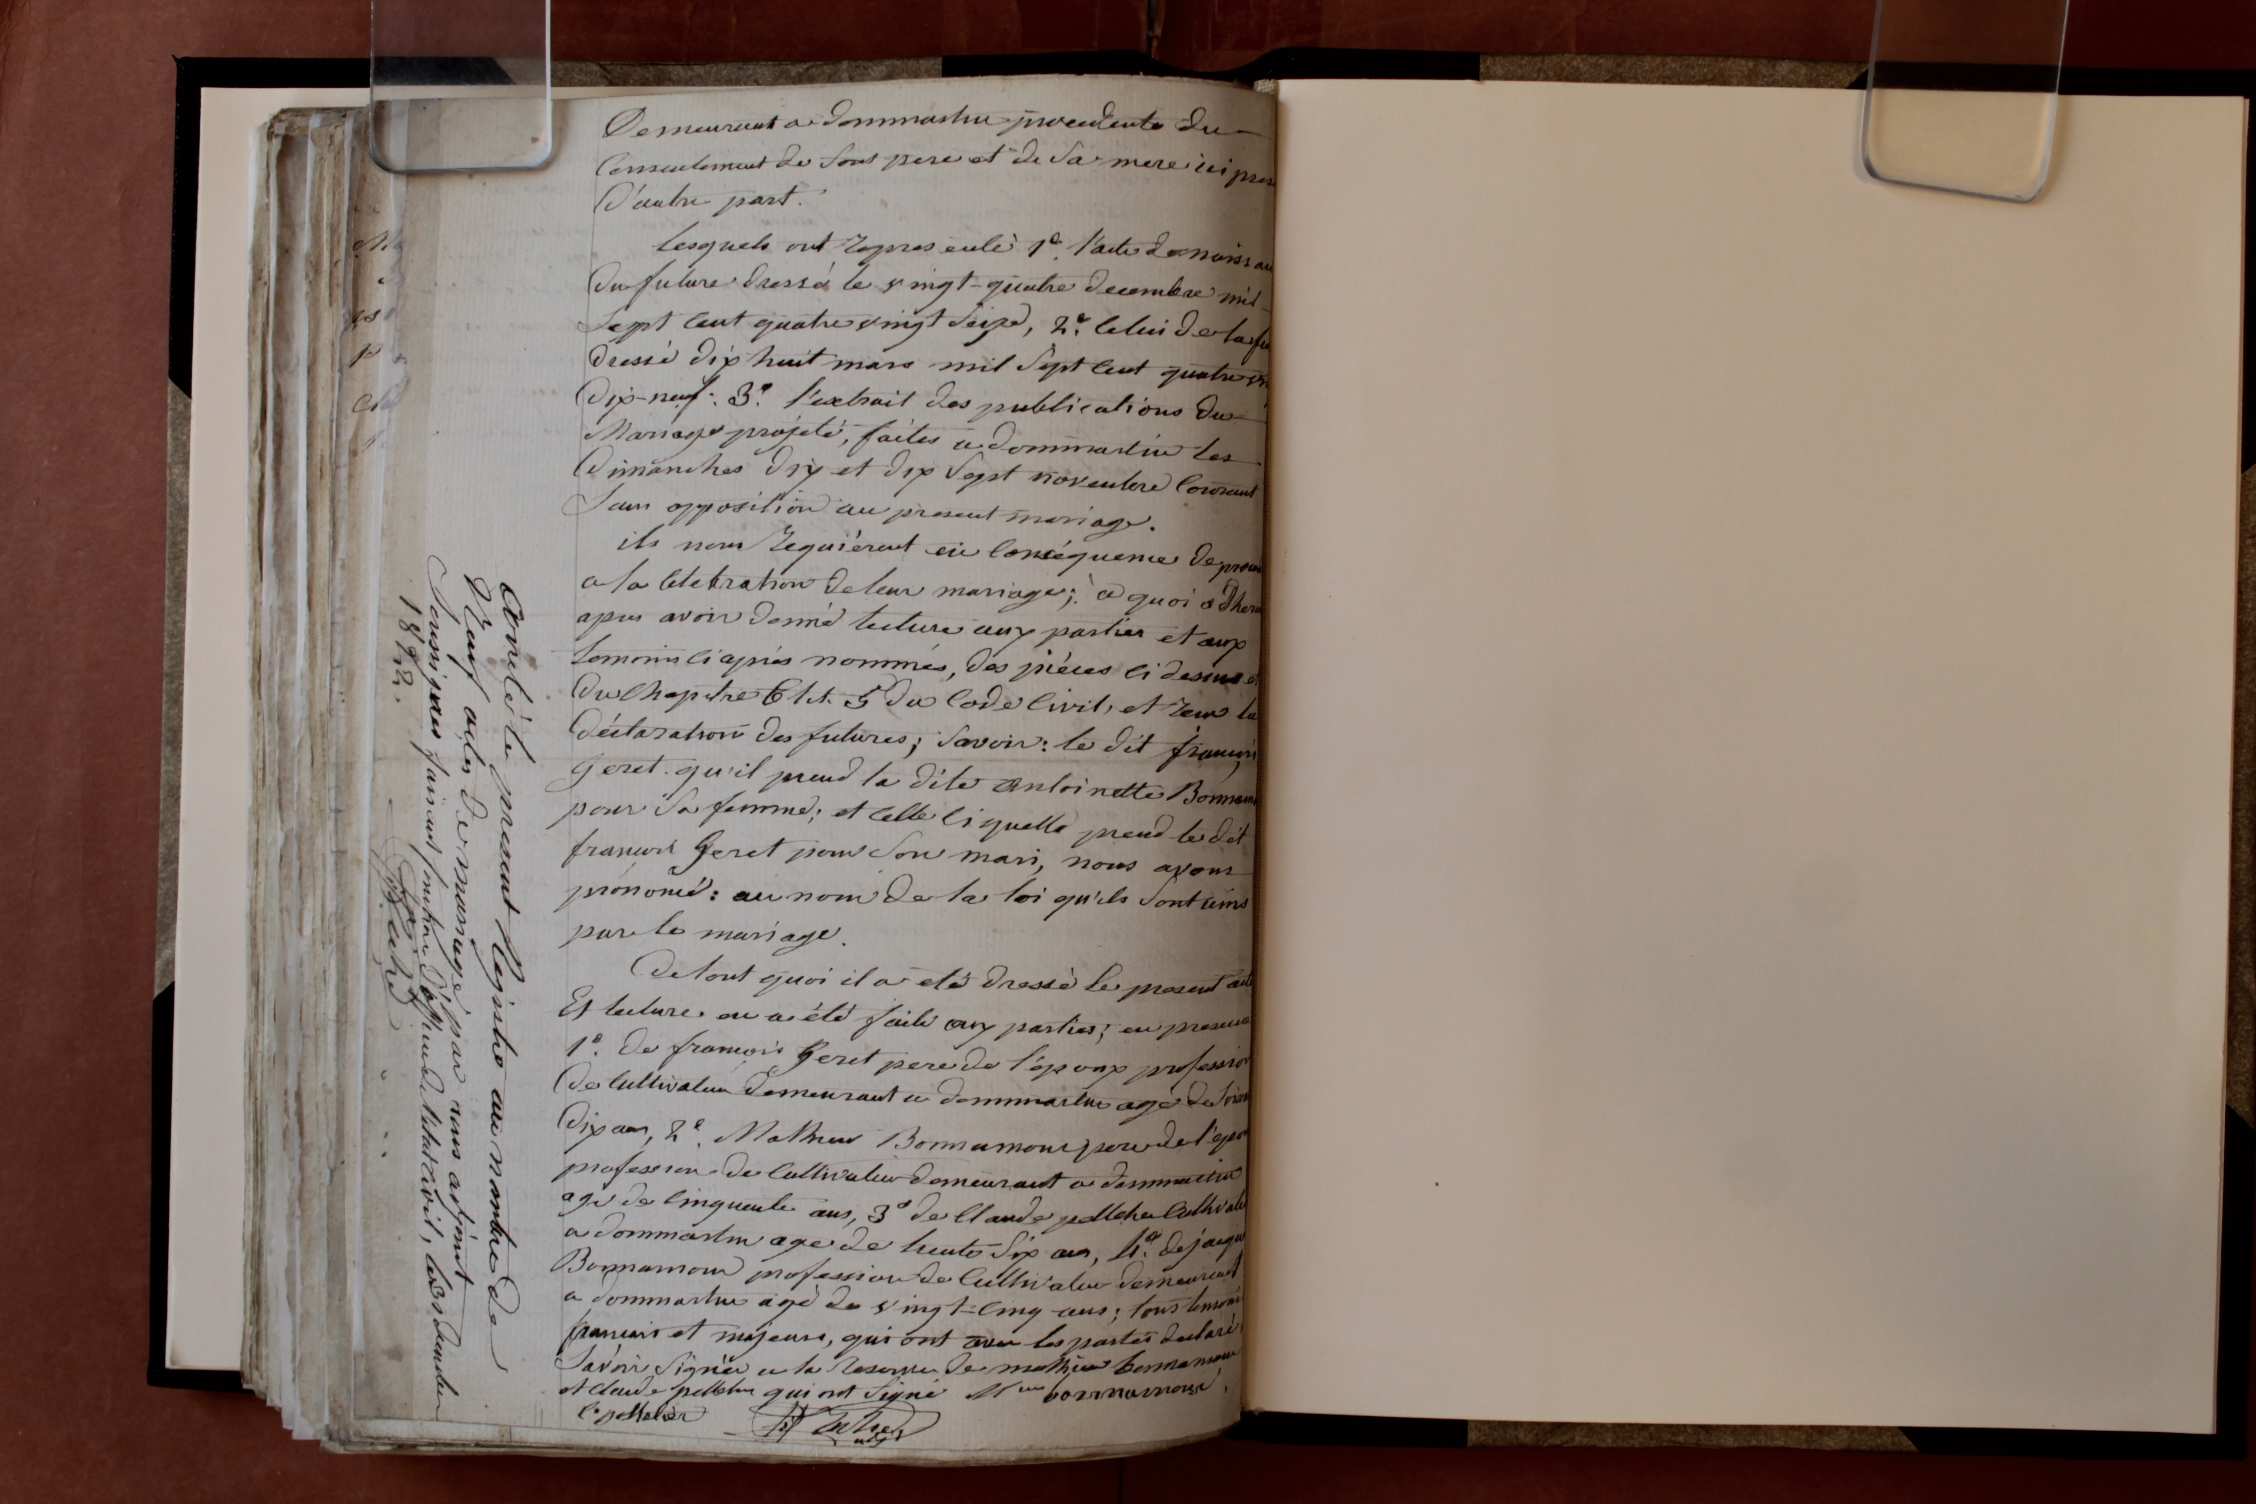 Demeurant a dommartin procedente du
Consentement de Sont pere et de Sa mere ici pres
D'autre part.
Lesquels ont Represenlé 1º. l'acte de naissan
Du future dressé le vingt-quatre decembre mil
Sept Cent quatre vingt Seize, 2º. Celui de la fu
Dressé dix huit mars mil Sept Cent quatre vi
Dix-neuf. 3º. l'extrait des publications du
Mariage projeté, faites a dommartin les
Dimanches dix et dix Sept novembre Courant
Sans opposition au present mariage.
ils nous Requièrent en Conséquence de proced
a la Celebration de leur mariage; a quoi adhera
apres avoir donné lecture aux parties et aux
temoins Ci après nommés, des pièces Ci dessus et
Du Chapitre 6 tit. 5 du Code Civil, et Reçu la
Déclaration des futures; Savoir: le dit françois
Geret qu'il prend la dite Antoinette Bonnamo
pour Sa femme; et Celle Ci quelle prend le dit
françois Geret pour Son mari, nous avons
prononcé: au nom de la loi qu'ils Sont unis
par le mariage.
De tout quoi il a eté dressé le present acte
Et lecture en a été faite aux parties; en presence
1º. de françois Geret pere de l'époux profession
De Cultivateur demeurant a dommartin agé de Soixa
Dix ans, 2º. Mathieu Bonnamour pere de l'epou
profession de Cultivateur demeurant a dommartin
agé de Cinquente ans, 3º de Claude pelletier Cultivate
a dommartin age de trente Six ans, 4º. de jacque
Bonnamour profession de Cultivateur demeurant
a dommartin agé de vingt-Cinq ans; tous temoin
francais et majeurs, qui ont avec les parties declaré
Savoir Signer a la Reserve de mathieu bonnamour
et Claude pelletier qui ont Signé Mieu bonnamour
Cde pelletier
Arreté le present Registre au nombre de
Neuf actes de mariage par nous adjoint
Soussignés faisant fonction d'officier de l'état Civil, le 31 decembre
1822.